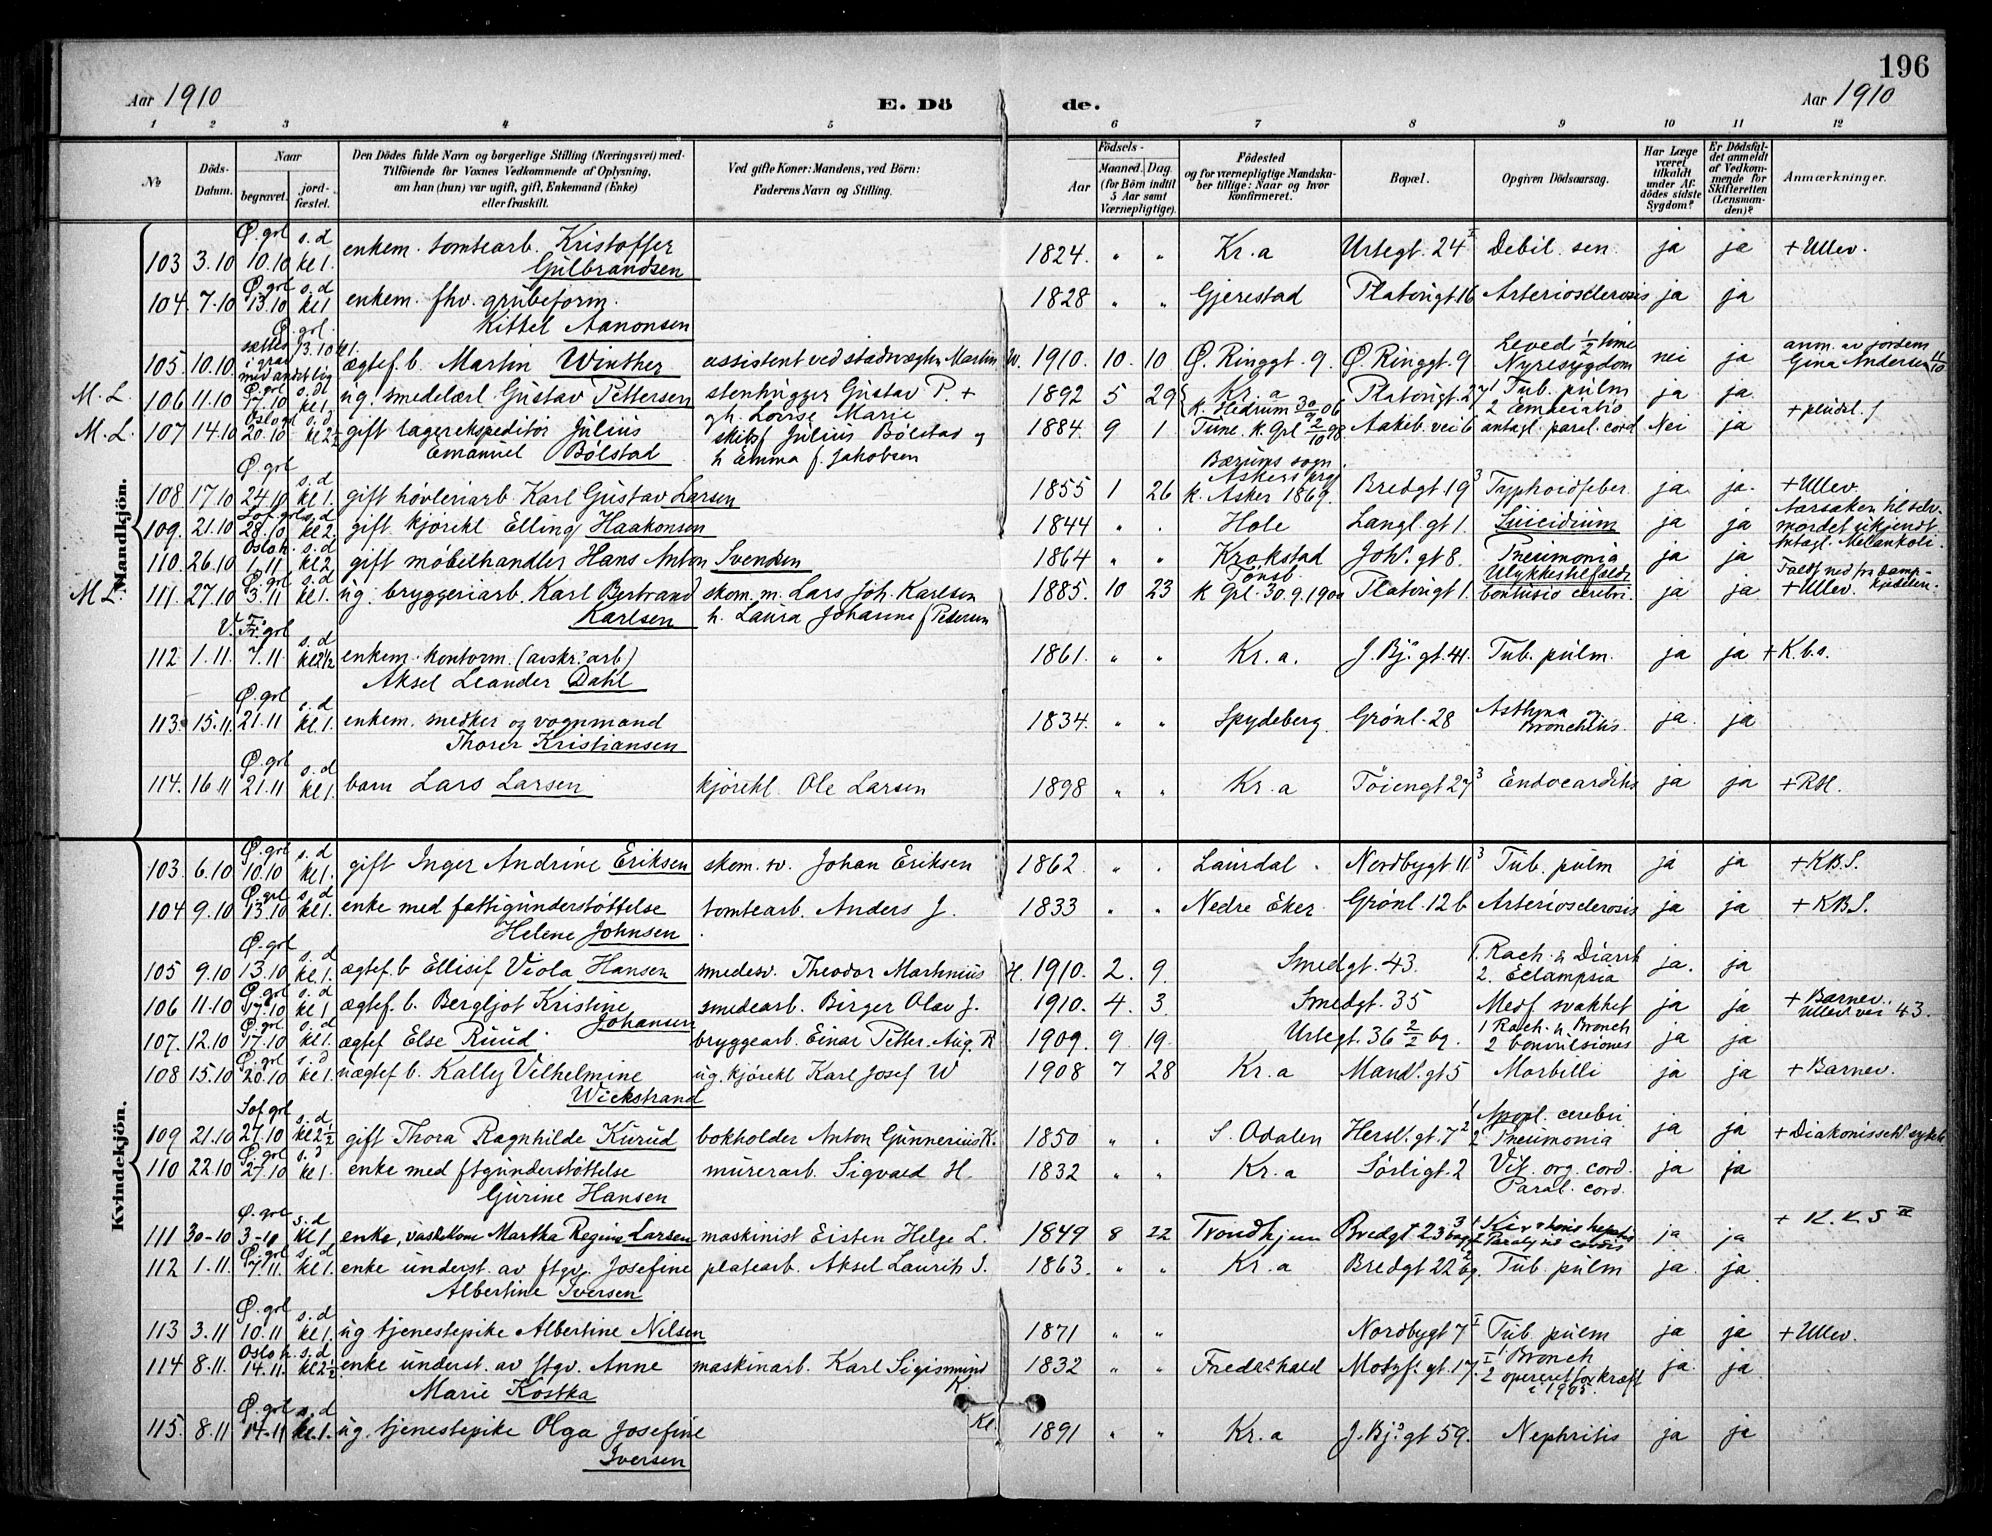 196
Aar 1910 E. Dö de. Aar 1910
1 2 3 4 5 6 7 8 9 10 11 12
No. Döds-Datum. Naar begravet. jord-fæstet. Den Dödes fulde Navn og borgerlige Stilling (Næringsvei) med Tilföiende for Voxnes Vedkommende af Oplysning, om han (hun) var ugift, gift, Enkemand (Enke) eller fraskilt. Ved gifte Koner: Mandens, ved Börn: Faderens Navn og Stilling. Födsels- Aar Maaned. Dag. (for Börn indtil 5 Aar samt Værnepligtige). Födested og for værnepligtige Mandskaber tillige: Naar og hvor konfirmeret. Bopæl. Opgiven Dödsaarsag. Har Læge været tilkaldt under Afdödes sidste Sygdom? Er Dödsfaldet anmeldt af Vedkommende for Skifteretten (Lensmanden)? Anmærkninger.
Mandkjön.
Ø. grl s. d
103 3.10 10.10 kl 1. enkem. tomtearb. Kristoffer Gulbrandsen 1824. " " Kr.a Urtegt. 24 I Debil. sen. ja ja + Ullev.
Ø grl s. d
104. 7.10 13.10 kl 1 enkem. fhv. grubeform. Kittel Aanonsen 1828 " " Gjerestad Platougt. 16 Arteriosclerosis ja ja
Ø. grl.
105. 10.10. sættes i grav med andet lig 13.10 kl 1. ægtef. b. Martin Winther assistent ved stadsvægter Martin W. 1910. 10. 10 Ø. Ringgt. 9. Ø. Ringgt. 9 Leved 1/2 time Nyresygdom nei ja anm. av jordem Gina Andersen 11/10
M. L. 106 11.10 Ø grl 17.10 s. d kl 1. ug. smedelærl. Gustav Pettersen stenhugger Gustav P. + gh. Lovise Marie 1892 5 29 Kr. a k. Hedrum 30/9 06 Platougt. 27 1 Tub. pulm 2 emaciatio ja ja
M. L. 107 14.10 Oslogrl 20.10 s. d kl 2 1/2 gift lagerekspeditör Julius Emanuel Bölstad skibsf Julius Bölstad og h Emma f. Jakobsen 1884. 9 1 Tune. k. Grl 2/10 98 Aakeb. vei 6 antagl. paral. cord Nei ja + pludsl. f
Ø grl s. d
108 17.10 24.10 kl 1. gift hövleriarb. Karl Gustav Larsen 1855 1 26 Bærums sogn. Askers prgj k. Asker 1869. Bredgt 19 3 Typhoidfeber. ja. ja. + Ullev.
109. 21.10 Sof. grl 28.10 s. d kl 2, gift kjörekl Elling Haakonsen 1844 " . Hole Langl. gt 1. Suicidium ja ja Aarsaken til selvmordet ukjendt Antagl. Melankoli.
110. 26.10 Oslo k. 1.11 s. d kl 2. gift möbelhandler Hans Anton Svendsen 1864 " " Krokstad Joh's. gt 8. Pneumonia ja ja
M L. 111. 27.10 Ø. grl 3.11 s. d kl 1. ug. bryggeriarb. Karl Bertrand Karlsen skom. m. Lars Joh. Karlsen h. Laura Johanne f Pedersen 1885. 10 23 Tönsb. k Grl. 30.9.1900 Platougt 1. Ulykkestilfælde Contusio cerebri. ja ja. Faldt ned fra damp-kjedelen. + Ullev.
V. Fr. grl s. d
112 1.11. 7.11. kl 2 1/2 enkem. kontorm. (avskr. arb) Aksel Leander Dahl 1861. " " Kr. a. J. Bj. gt. 41. Tub. pulm. ja ja + K. b. s.
Ø. grl s. d
113. 15.11. 21.11 kl 1. enkem. snedker og vognmand Thorer Kristiansen 1834. " " Spydeberg Grönl. 28 Asthma og Bronchitis ja. ja
Ø. grl s. d
114. 16 11 21.11 kl 1. barn Lars Larsen kjörekl. Ole Larsen 1898 " " Kr. a Töiengt 27 3 Endocarditis ja ja + RH.
Kvindekjön.
Ø. grl s. d
103. 6.10 10.10 kl 1. gift Inger Andrine Eriksen skom. sv. Johan Eriksen 1862 " . Laurdal . Nordbygt 11 3 Tub. pulm ja ja + KBS.
Ø. grl s. d
104 9.10 13.10 kl 1. enke med fattigunderstöttelse Helene Johnsen tomtearb. Anders J. 1833 " " Nedre Eker Grönl. 12 b Arteriosclerosis ja ja + KBS.
Ø. grl s. d
105 9.10 13.10 kl 1. ægtef. b Ellisif Viola Hansen smedesv. Theodor Martinius H. 1910. 2. 9. Smedgt. 43. 1. Rach. & Diarrh 2. Eclampsia ja. ja
106 11.10 Ø. grl 17.10 s. d kl 1 ægtef. b. Bergljot Kristine Johansen smedearb. Birger Olav J. 1910. 4. 3 Smedgt. 35 Medf svakhet ja ja + Barnev. Ullev. vei 43.
107. 12.10 Ø. grl 17.10 s. d kl 1. ægtef Else Ruud bryggearb. Einar Petter. Aug. R 1909. 9 19. Urtegt. 36 2/2 bg. 1 Rach. & Bronch 2 Convulsiones ja ja
108 15.10 Ø grl 20.10 s. d kl 1. uægtef b. Kally Vilhelmine Wickstrand ug. kjörekl Karl Josef W 1908 7 28 Kr. a Mand's. gt 5 Morbilli ja ja + Barnev.
Sof grl s. d
109 21.10 27.10 kl 2 1/2 gift Thora Ragnhilde Kurud bokholder Anton Gunnerius K. 1850 " " S. Odalen Hersl. gt. 7 2 1 Apopl. cerebri 2 Pneumonia ja ja + Diakonissehs. sykeh
110 22.10 Ø. grl 27.10 s. d kl 1. enke med ftgunderstöttelse Gurine Hansen murerarb. Sigvald H. 1832 " " Kr. a Sörligt. 2 Vit. org. cord. Paral. cord. ja ja
Ø. grl s. d
111 30-10 3-10 kl 1 enke, vaskekone Martha Regine Larsen maskinist Eisten Helge L. 1849 8 22 Trondhjem Bredgt 23 3 Cirrhosis hepatis Paralysis cordis ja ja + K. K. S III
112 1.11. Ø grl 7.11. s. d kl 1. enke underst. av ftgv. Josefine Albertine Iversen platearb. Aksel Laurits I. 1863. " " Kr. a Bredgt 22 2 bg. Tub. pulm ja. ja.
Ø. grl s. d
113 3.11 10.11 kl 1. ug tjenestepike Albertine Nilsen 1871 " " Nordbygt 7 I Tub. pulm ja ja + Ullev.
114 8.11. Oslo k. 14.11. s. d kl 2 1/2 enke underst. av ftgv. Anne Marie Kostka maskinarb. Karl Sigismund K. 1832 " " Fredr.hald Motzf. gt. 17. I 1 Bronch 2 opereret for kræft i 1905 ja. ja.
Ø. grl s. d
115. 8.11 14.11 kl. 1. ug. tjenestepike Olga Josefine Iversen Kl. 1891 " " Kr. a J. Bj. gt 59. Nephritis ja ja